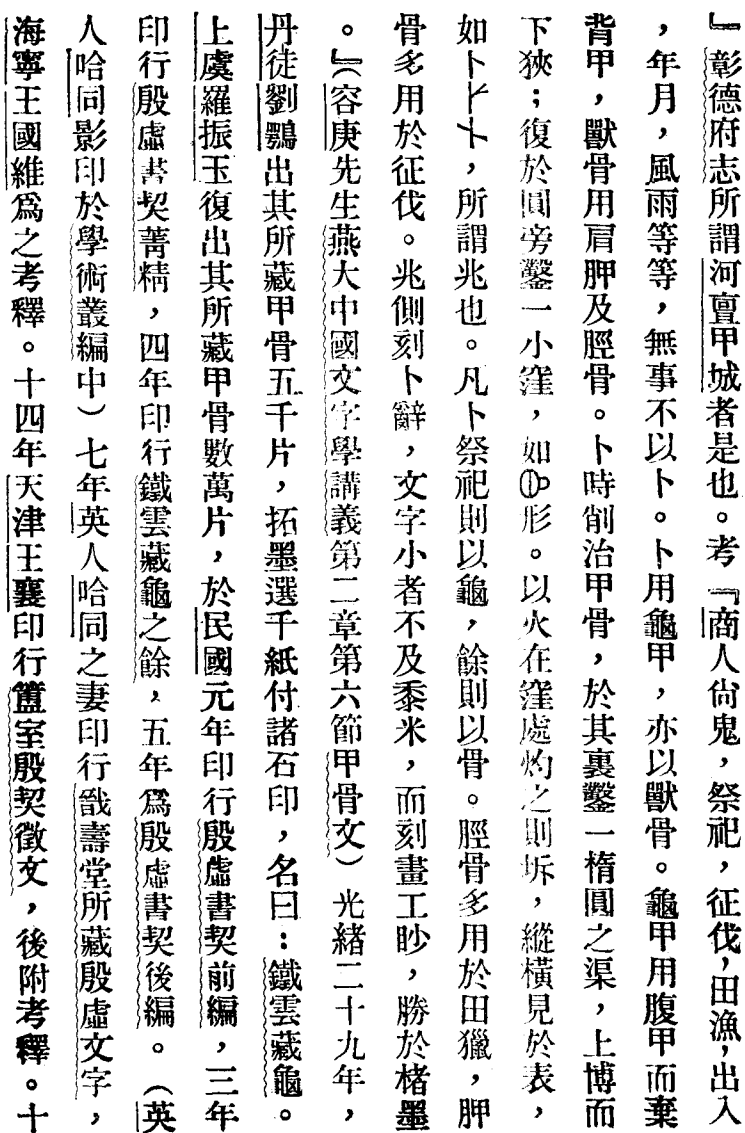 』彰德府志所謂河亶甲城者是也。考『商人尙鬼，祭祀，征伐，田漁，出入
，年月，風雨等等，無事不以卜。卜用龜甲，亦以獸骨。龜甲用腹甲而棄
背甲，獸骨用肩胛及脛骨。卜時削治甲骨，於其裏鑿一橢圓之渠，上博而
下狹；復於圓旁鑿一小窪，如形。以火在窪處灼之則坼，縱橫見於表，
如卜，所謂兆也。凡卜祭祀則以龜，餘則以骨。脛骨多用於田獵，胛
骨多用於征伐。兆側刻卜辭，文字小者不及黍米，而刻畫工眇，勝於楮墨
。』（容庚先生燕大中國文字學講義第二章第六節甲骨文）光緒二十九年，
丹徒劉鶚出其所藏甲骨五千片，拓墨選千紙付諸石印，名曰：鐵雲藏龜。
上虞羅振玉復出其所藏甲骨數萬片，於民國元年印行殷虛書契前編，三年
印行殷虛書契菁精，四年印行鐵雲藏龜之餘，五年爲殷虛書契後編。（英
人哈同影印於學術叢編中）七年英人哈同之妻印行戩壽堂所藏殷虛文字，
海寧王國維爲之考釋。十四年天津王襄印行簠室殷契徵文，後附考釋。十